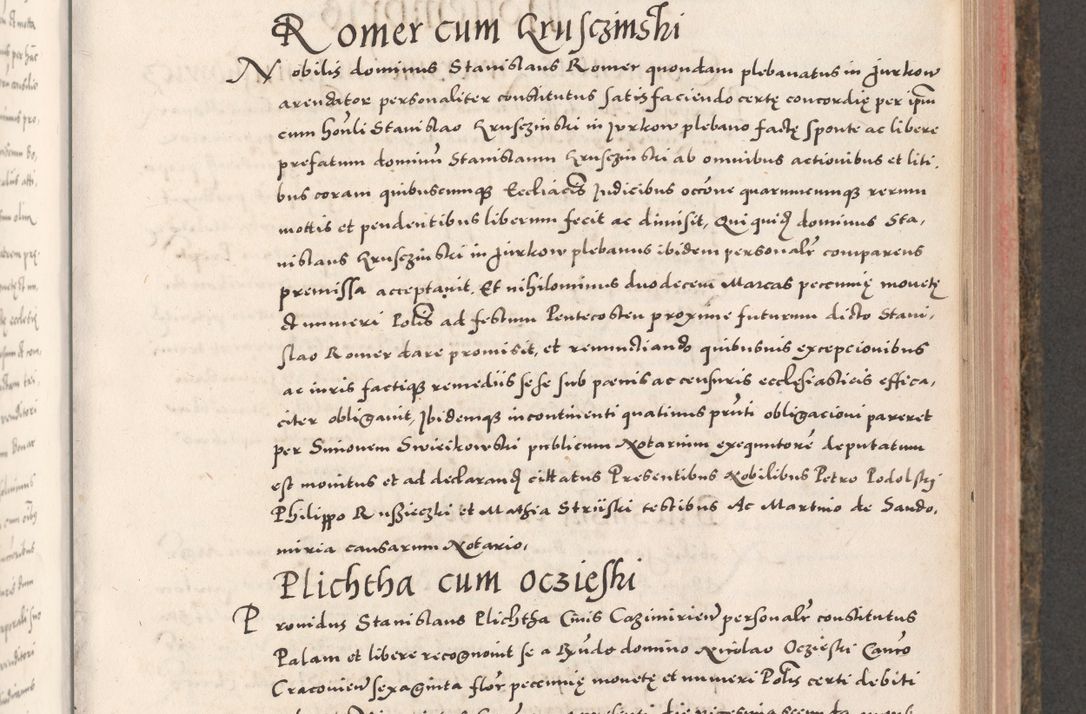 Romer cum Krusczinski
Nobilis dominus Stanislaus Romer quondam plebanatus in Jurkow
arendator personaliter constitutus satisfaciendo certę concordię per ipm̄
cum hon̄li Stanislao Krusczinski in Jurkow plebano factę sponte ac libere
prefatum dominū Stanislaum Krusczinski ab omnibus actionibus et liti,
bus coram quibuscumqȝ Eccliacīs Judicibus occōne quarumcumqȝ rerum
mottis et pendentibus liberum fecit ac dimisit, Qui quidȝ dominus Sta,
nislaus Krusczinski in Jurkow plebanus ibidem personalr̄ comparens
premissa acceptauit. Et nihilominus duodecem Marcas pecunię monetę
et numeri Polīs ad festum Pentecosten proxime futurum dicto Stani,
slao Romer dare promisit, et renunctiando quibusuis excepcionibus
ac iuris factiqȝ remedūs sese sub pœnis ac censuris ecclesiasticis effica,
citer obligauit, Ibidemqȝ incontinenti quatinus prn̄ti obligacioni pareret
per Simonem Swieckowski publicum Notarium exequutorē deputatum
est monitus et ad declarandȝ cittatus Presentibus Nobilibus Petro Podolskij
Philippo Ruszieczki et Mathia Strijski testibus Ac Martino de Sando,
miria causarum Notario,
Plichtha cum Oczieski
Prouidus Stanislaus Plichtha Ciuis Cazimirien̄ personalr̄ constitutus
Palam et libere recognouit se a Rn̄do domino Nicolao Oczieski Canco
Cracouien̄ sexaginta flor̄ pecunię monetę et numeri Polīs certi debiti